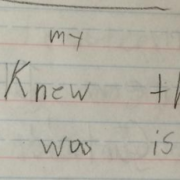 my
Knew
was is